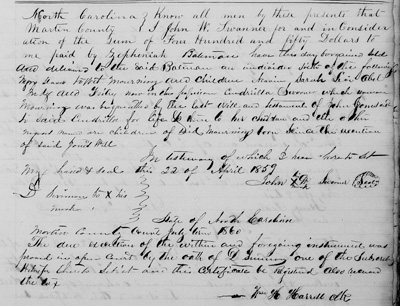 North Carolina } Know all men by these presents that
Martin County } I John W. Swanner for and in Consider
ation of the Sum of Four Hundred and fifty Dollars to
me paid by Zephaniah Bateman have this day bargained sold
and delivered to the said Bateman an undivided sixth of the following
Negro Slaves to Wit Mourning and Children Sarah Abel
and now in the possession Cindrilla Swanner which woman
Mourning was bequeathed by the last will and testament of John
to said Cindrilla for life to her children and the other
are children of said Mourning born since the execution
of said will
In testimony of which I have hereto set
my hand & seal this 22 of April 1859
D Simmons to X his John Swanner Seal
mark
State of North Carolina
Martin County Court July term 1860
The due execution of the within and foregoing instrument was
proved in open Court by the oath of D Simmons one of the Subscribing
Witness thereto let it and this Certificate be registered
the
Wm H Harrell Clk